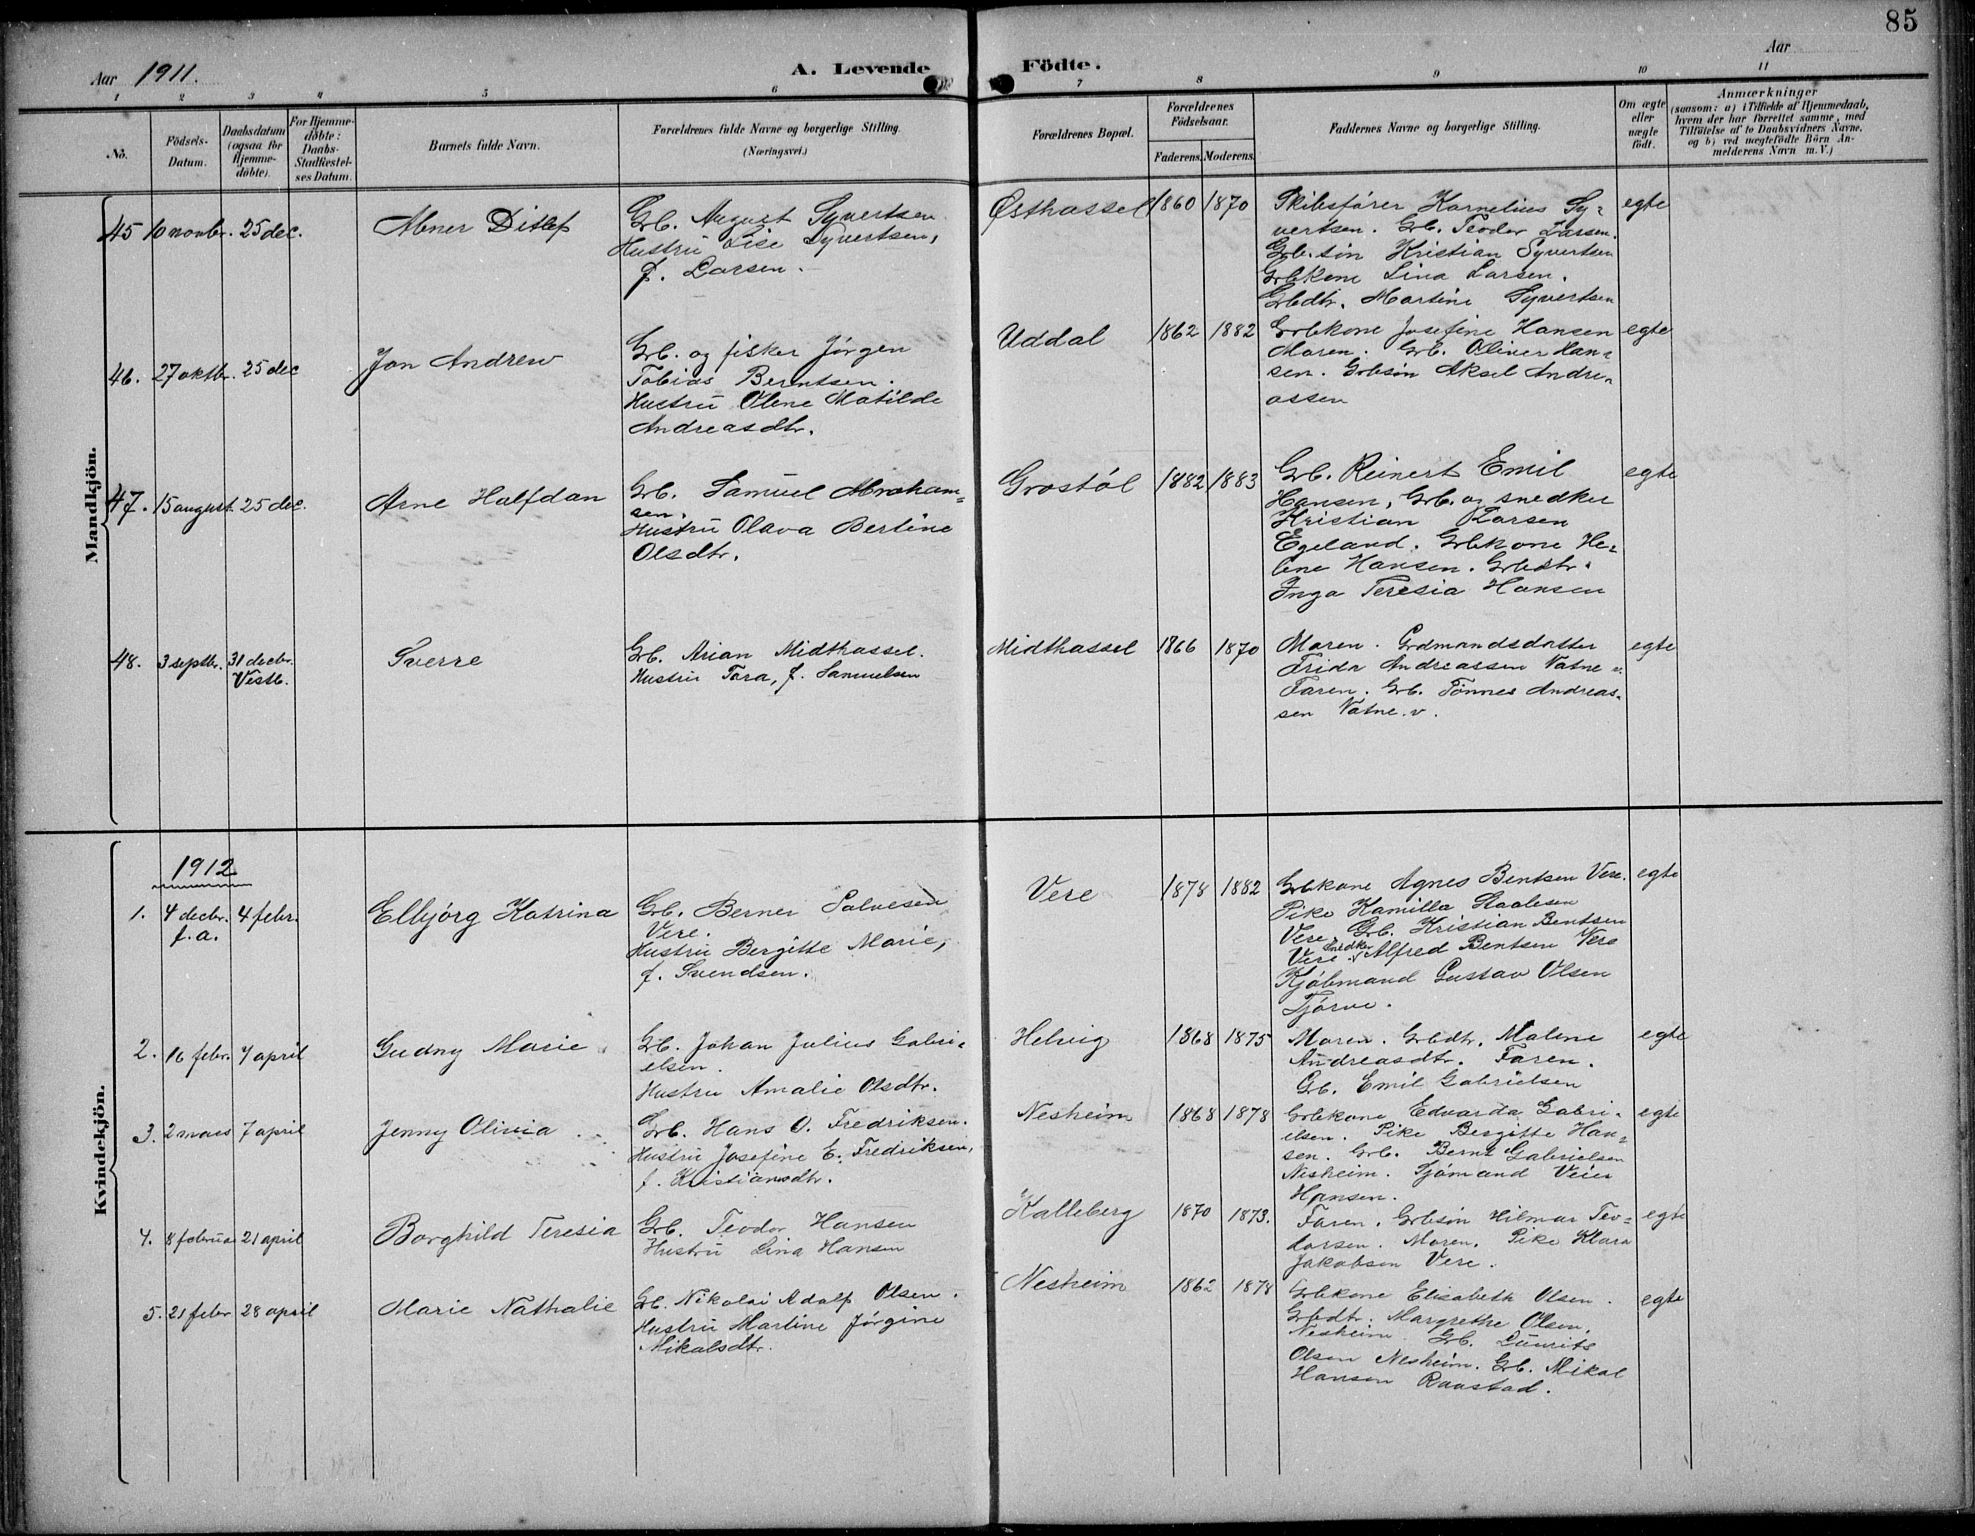 85
Aar 1911.
A. Levende Fødte.
Aar
1 2 3 4 5 6 7 8 9 10 11
No.
Födsels-Datum.
Daabsdatum (ogsaa for Hjemme-døbte).
For Hjemme-døbte: Daabs-Stadfæstel-ses Datum.
Barnets fulde Navn.
Forældrenes fulde Navne og borgerlige Stilling. (Næringsvei.)
Forældrenes Bopæl.
Forældrenes Fødselsaar.
Faderens. Moderens.
Faddernes Navne og borgerlige Stilling.
Om ægte eller uægte født.
Anmærkninger
(saasom: a) i Tilfælde af Hjemmedaab,
hvem der har forrettet samme, med
Tilföielse af to Daabsvidners Navne,
og b) ved uægtefödte Börn An-
melderens Navn m. V.)
Mandkjön.
45 10 novbr. 25 dec. Abner Ditlef
Grb. August Syvertsen
Hustru Lise Syvertsen,
f. Larsen.
Østhassel 1860 1870
Skibsfører Kornelius Sy-
vertsen. Grb. Teodor Larsen.
Grb.søn Kristian Syvertsen
Grbkone Lina Larsen.
Grbdtr. Martine Syvertsen
egte
46. 27 oktbr. 25 dec Jon Andrew
Grb. og fisker Jørgen
Tobias Berntsen.
Hustru Olene Matilde
Andreasdtr.
Uddal 1862 1882
Grbkone Josefine Hansen
Moren. Grb. Oliver Han-
sen. Grbsøn Aksel Andre-
assen
egte
47. 15 august 25 dec. Arne Halfdan
Grb. Samuel Abraham-
sen.
Hustru Olava Bertine
Olsdtr.
Grostøl 1882 1883
Grb. Reinert Emil
Hansen, Grb. og snedker
Kristian Larsen
Egeland. Grbkone He-
lene Hansen. Grbdtr.
Inga Teresia Hansen
egte
48. 3 septbr. 31 decbr. Vestb. Sverre
Grb. Arian Midthassel.
Hustru Tora, f. Samuelsen
Midthassel 1866 1870
Moren. Grdmandsdatter
Frida Andreassen Vatne v.
Faren. Grb. Tønnes Andreas-
sen Vatne. v.
egte
Kvindekjön.
1912
1. 4 decbr. f.a. 4 febr. Elbjørg Katrina
Grb. Berner Salvesen
Vere.
Hustru Bergitte Marie,
f. Svendsen.
Vere 1878 1882
Grbkone Agnes Bentsen Vere.
Pike Kamilla Staalesen
Vere. Grb. Kristian Bentsen
Vere. snedker Alfred Bentsen Vere
Kjøbmand Gustav Olsen
Tjørve.
egte
2. 16 febr. 7 april Gudny Marie
Grb. Johan Julius Gabri-
elsen.
Hustru Amalie Olsdtr.
Helvig 1868 1875
Moren. Grbdtr. Malene
Andreasdtr. Faren.
Grb. Emil Gabrielsen
egte
3. 2 mars 7 april Jenny Olivia
Grb. Hans O. Fredriksen.
Hustru Josefine E. Fredriksen,
f. Kristiansdtr.
Nesheim 1868 1878
Grbkone Edvarda Gabri-
elsen. Pike Bergitte Han-
sen. Grb. Bernt Gabrielsen
Nesheim. Sjømand Veier
Hansen.
egte
4. 8 februar 21 april Borghild Teresia
Grb. Teodor Hansen
Hustru Lina Hansen
Kalleberg 1870 1873.
Faren. Grbsøn Hilmar Teo-
dorsen. Moren. Pike Klara
Jakobsen Vere.
egte
5. 21 febr 28 april Marie Nathalie
Grb. Nikolai Adolf Olsen.
Hustru Martine Jørgine
Mikalsdtr.
Nesheim 1862 1878
Grbkone Elisabeth Olsen.
Grbdtr. Margrethe Olsen,
Nesheim. Grb. Laurits
Olsen Nesheim. Grb. Mikal
Hansen Raustad.
egte